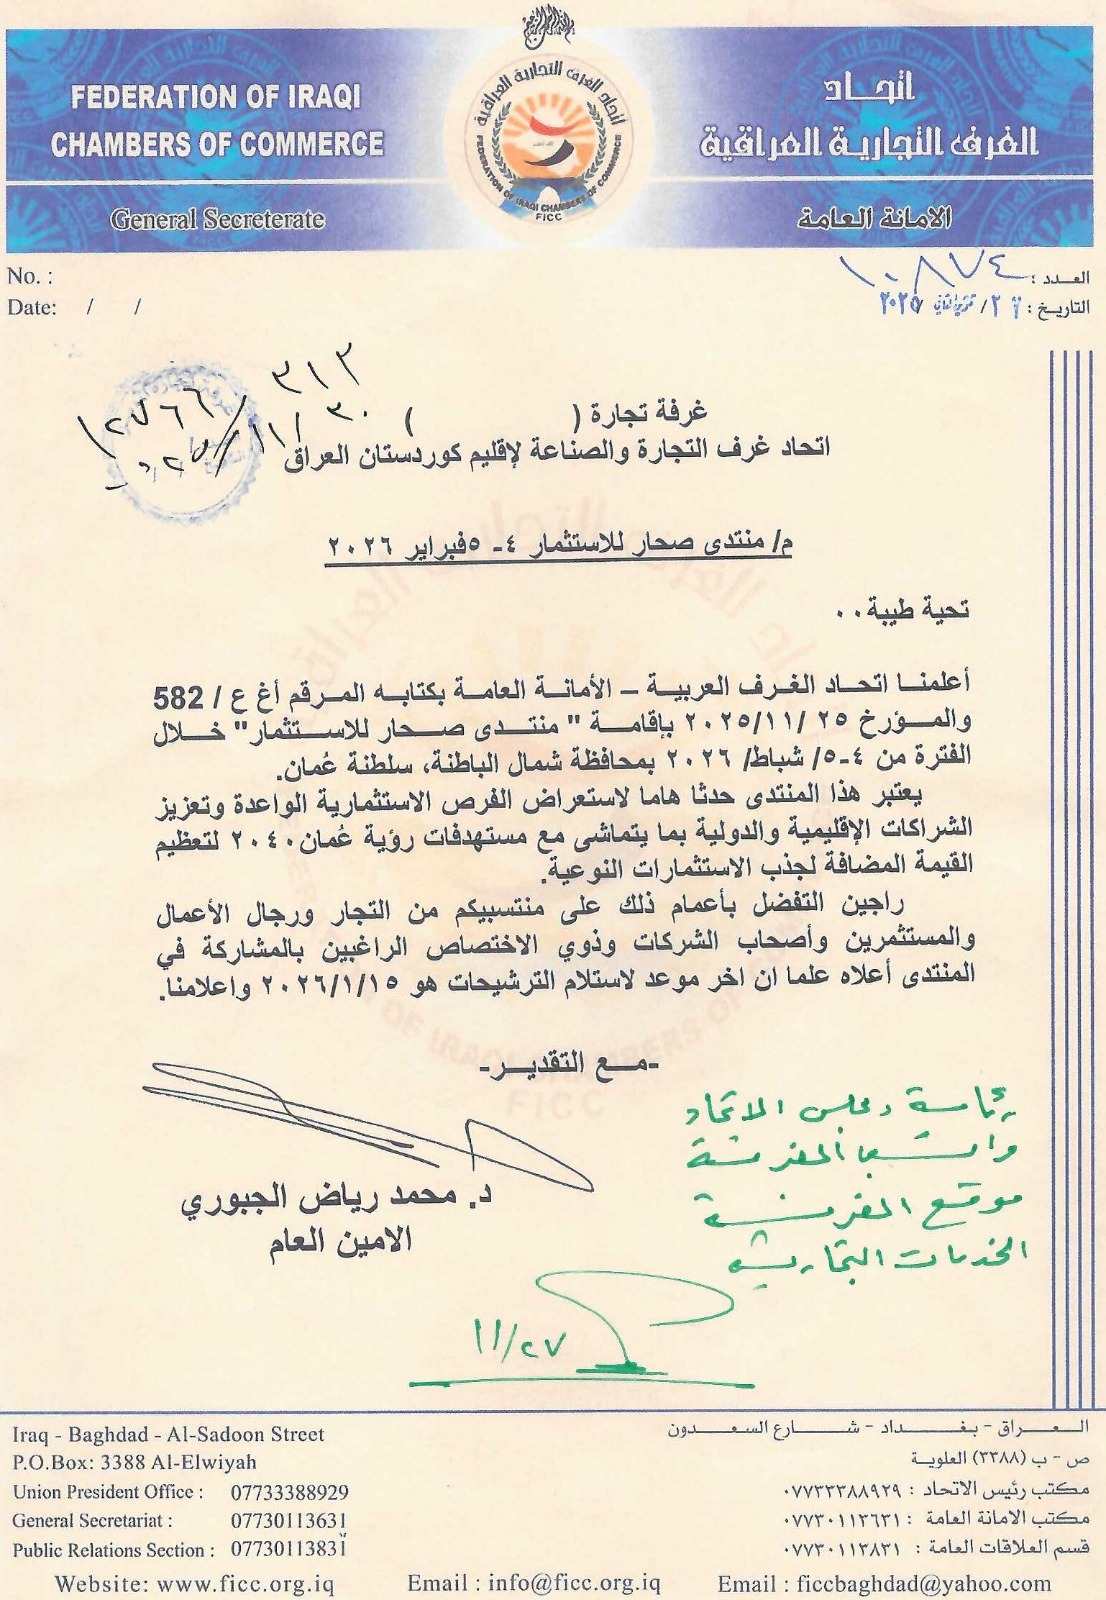 FEDERATION OF IRAQI
CHAMBERS OF COMMERCE
General Secreterate
اتحاد الغرف التجارية العراقية
FEDERATION OF IRAQI CHAMBERS OF COMMERCE
FICC
اتحاد
الغرف التجارية العراقية
الامانة العامة
No. :
Date: / /
العدد : ١٠٨٧٤
التاريخ : ٢٦/ تشرين الثاني /٢٠٢٥
٣١٣
١٢٧٦٦
٢٠٢٥/١١/٣٠
غرفة تجارة ( )
اتحاد غرف التجارة والصناعة لإقليم كوردستان العراق
م/ منتدى صحار للاستثمار ٤- ٥فبراير ٢٠٢٦
تحية طيبة..
أعلمنا اتحاد الغرف العربية – الأمانة العامة بكتابه المرقم أغ ع / 582
والمؤرخ ٢٥ /١١/ ٢٠٢٥ بإقامة " منتدى صحار للاستثمار" خلال
الفترة من ٤-٥/ شباط/ ٢٠٢٦ بمحافظة شمال الباطنة، سلطنة عُمان.
يعتبر هذا المنتدى حدثا هاما لاستعراض الفرص الاستثمارية الواعدة وتعزيز
الشراكات الإقليمية والدولية بما يتماشى مع مستهدفات رؤية عُمان٢٠٤٠ لتعظيم
القيمة المضافة لجذب الاستثمارات النوعية.
راجين التفضل بأعمام ذلك على منتسبيكم من التجار ورجال الأعمال
والمستثمرين وأصحاب الشركات وذوي الاختصاص الراغبين بالمشاركة في
المنتدى أعلاه علما ان اخر موعد لاستلام الترشيحات هو ٢٠٢٦/١/١٥ واعلامنا.
-مع التقدير-
د. محمد رياض الجبوري
الامين العام
موقع الغرفة
الخدمات التجارية
١١/٢٧
Iraq - Baghdad - Al-Sadoon Street
P.O.Box: 3388 Al-Elwiyah
Union President Office : 07733388929
General Secretariat : 07730113631
Public Relations Section : 07730113831
العراق - بغداد - شارع السعدون
ص - ب (٣٣٨٨) العلوية
مكتب رئيس الاتحاد : ٠٧٧٣٣٣٨٨٩٢٩
مكتب الامانة العامة : ٠٧٧٣٠١١٣٦٣١
قسم العلاقات العامة : ٠٧٧٣٠١١٣٨٣١
Website: www.ficc.org.iq Email : info@ficc.org.iq Email : ficcbaghdad@yahoo.com